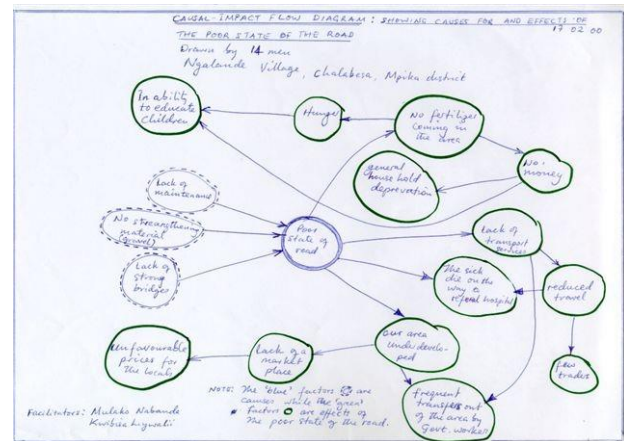 CAUSAL-IMPACT FLOW DIAGRAM : SHOWING CAUSES FOR AND EFFECTS OF
THE POOR STATE OF THE ROAD
17 02 00
Drawn by 14 men
Ngalande Village, Chalabesa, Mpika district
In ability
to educate
Children
Hunger
No fertilizer
coming in
the area
No
money
general
house hold
deprevation
Lack of
maintenance
No strengthening
material
(gravel)
Lack of
strong
bridges
Poor
state of
road
Lack of
transport
services
The sick
die on the
way to
referal hospital
reduced
travel
few
trades
our area
underdevelo-
ped
Lack of a
market
place
unfavourable
prices for
the locals
frequent
transfers out
of the area by
Govt. workers
NOTE: The 'blue' factors are
causes while the 'green'
factors are effects of
the poor state of the road.
Facilitators: Mulako Nabanda